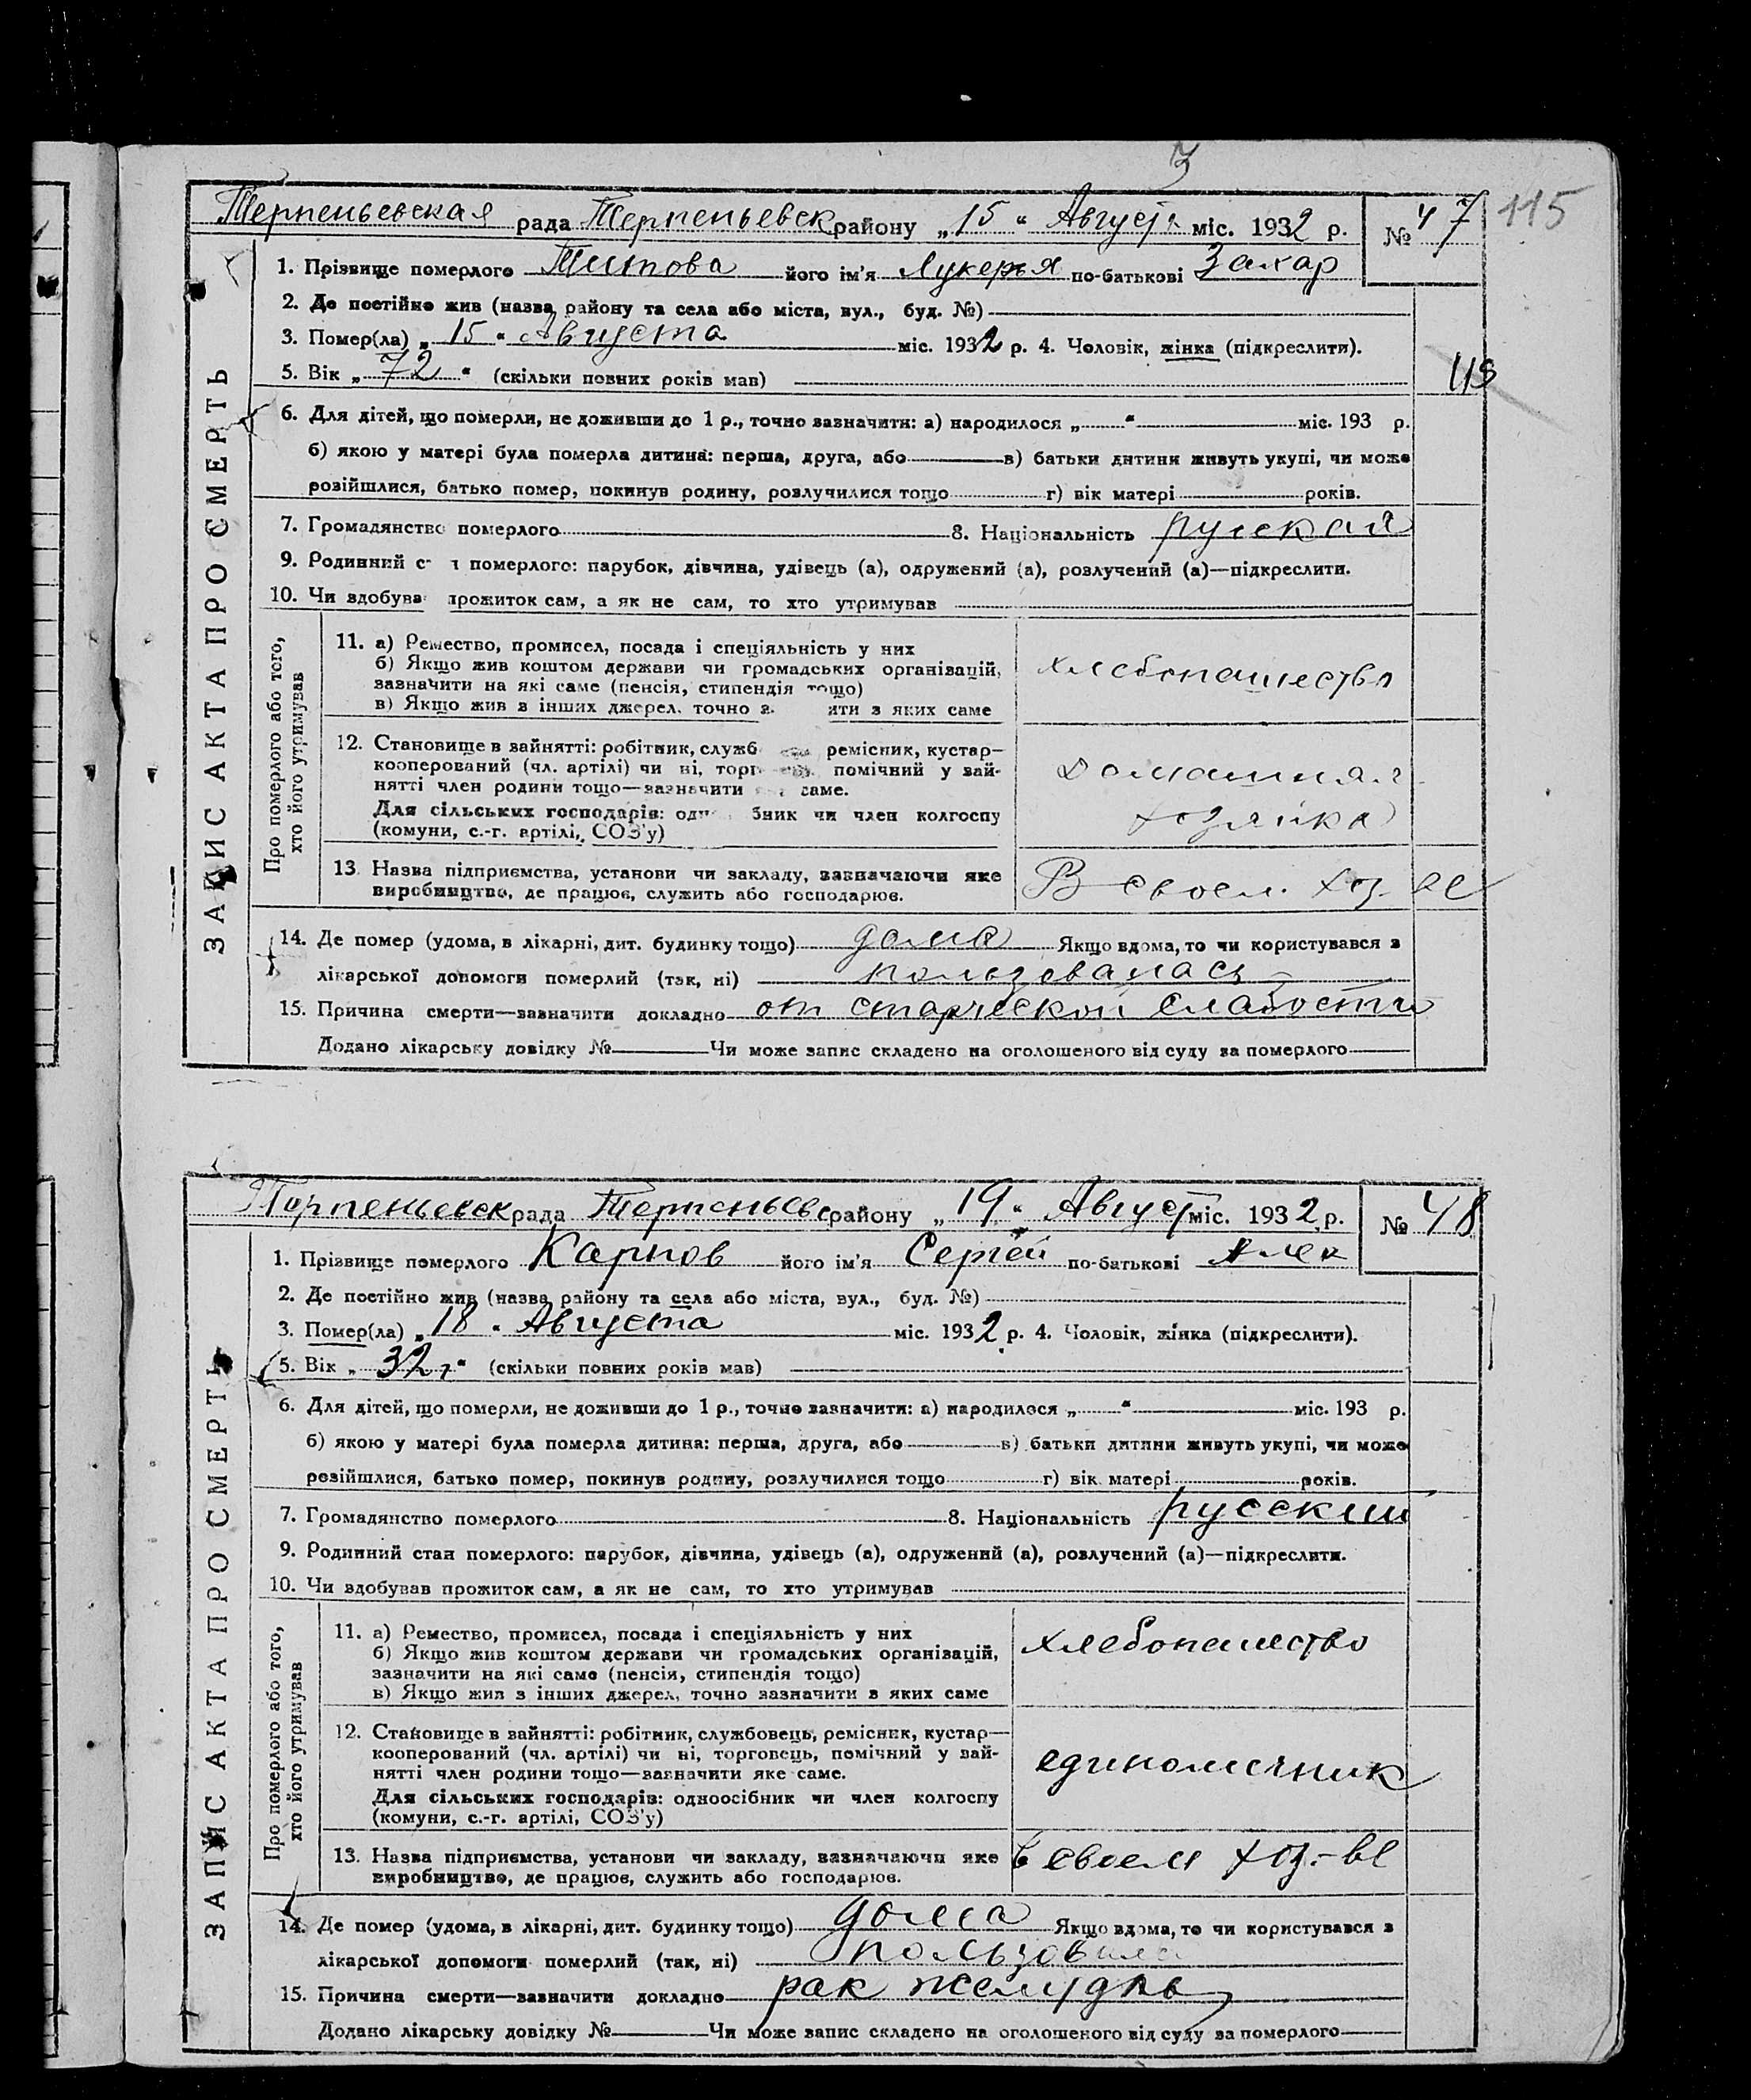 3
Терпеньевская рада Терпеньевск району „15“ Август міс. 1932 р. № 47 115
1. Прізвище померлого Титова його ім'я Лукерья по-батькові Захар
2. Де постійно жив (назва району та села або міста, вул., буд. №)
3. Помер(ла) „15“ Августа міс. 1932 р. 4. Чоловік, жінка (підкреслити).
5. Вік „72“ (скільки повних років мав)
6. Для дітей, що померли, не доживши до 1 р., точно зазначити: а) народилося „ “ міс. 193 р.
б) якою у матері була померла дитина: перша, друга, або в) батьки дитини живуть укупі, чи може
розійшлися, батько помер, покинув родину, розлучилися тощо г) вік матері років.
7. Громадянство померлого 8. Національність русская
9. Родинний с т померлого: парубок, дівчина, удівець (а), одружений (а), розлучений (а)—підкреслити.
10. Чи здобува прожиток сам, а як не сам, то хто утримував
ЗАПИС АКТА ПРО СМЕРТЬ
Про померлого або того,
хто його утримував
11. а) Ремество, промисел, посада і спеціяльність у них
б) Якщо жив коштом держави чи громадських організацій,
зазначити на які саме (пенсія, стипендія тощо)
в) Якщо жив з інших джерел, точно з ити з яких саме
хлебопашество
12. Становище в зайнятті: робітник, служб ремісник, кустар—
кооперований (чл. артілі) чи ні, торг помічний у зай-
нятті член родини тощо—зазначити саме.
Для сільських господарів: одн бник чи член колгоспу
(комуни, с.-г. артілі, СОЗ'у)
домашняя
хозяйка
13. Назва підприємства, установи чи закладу, зазначаючи яке
виробництво, де працює, служить або господарює.
В своем хоз-ве
14. Де помер (удома, в лікарні, дит. будинку тощо) дома Якщо вдома, то чи користувався з
лікарської допомоги померлий (так, ні) пользовалась
15. Причина смерти—зазначити докладно от старческой слабости
Додано лікарську довідку № Чи може запис складено на оголошеного від суду за померлого
Терпеньевск рада Терпеньевс району „19“ Август міс. 1932 р. № 48
1. Прізвище померлого Карпов його ім'я Сергей по-батькові Алек
2. Де постійно жив (назва району та села або міста, вул., буд. №)
3. Помер(ла) „18“ Августа міс. 1932 р. 4. Чоловік, жінка (підкреслити).
5. Вік „32г“ (скільки повних років мав)
6. Для дітей, що померли, не доживши до 1 р., точно зазначити: а) народилося „ “ міс. 193 р.
б) якою у матері була померла дитина: перша, друга, або в) батьки дитини живуть укупі, чи може
розійшлися, батько помер, покинув родину, розлучилися тощо г) вік матері років.
7. Громадянство померлого 8. Національність русский
9. Родинний стан померлого: парубок, дівчина, удівець (а), одружений (а), розлучений (а)—підкреслити.
10. Чи здобував прожиток сам, а як не сам, то хто утримував
ЗАПИС АКТА ПРО СМЕРТЬ
Про померлого або того,
хто його утримував
11. а) Ремество, промисел, посада і спеціяльність у них
б) Якщо жив коштом держави чи громадських організацій,
зазначити на які саме (пенсія, стипендія тощо)
в) Якщо жив з інших джерел, точно зазначити з яких саме
хлебопашество
12. Становище в зайнятті: робітник, службовець, ремісник, кустар—
кооперований (чл. артілі) чи ні, торговець, помічний у зай-
нятті член родини тощо—зазначити яке саме.
Для сільських господарів: одноосібник чи член колгоспу
(комуни, с.-г. артілі, СОЗ'у)
единоличник
13. Назва підприємства, установи чи закладу, зазначаючи яке
виробництво, де працює, служить або господарює.
в своем хоз-ве
14. Де помер (удома, в лікарні, дит. будинку тощо) дома Якщо вдома, то чи користувався з
лікарської допомоги померлий (так, ні)
15. Причина смерти—зазначити докладно рак желудка
Додано лікарську довідку № Чи може запис складено на оголошеного від суду за померлого